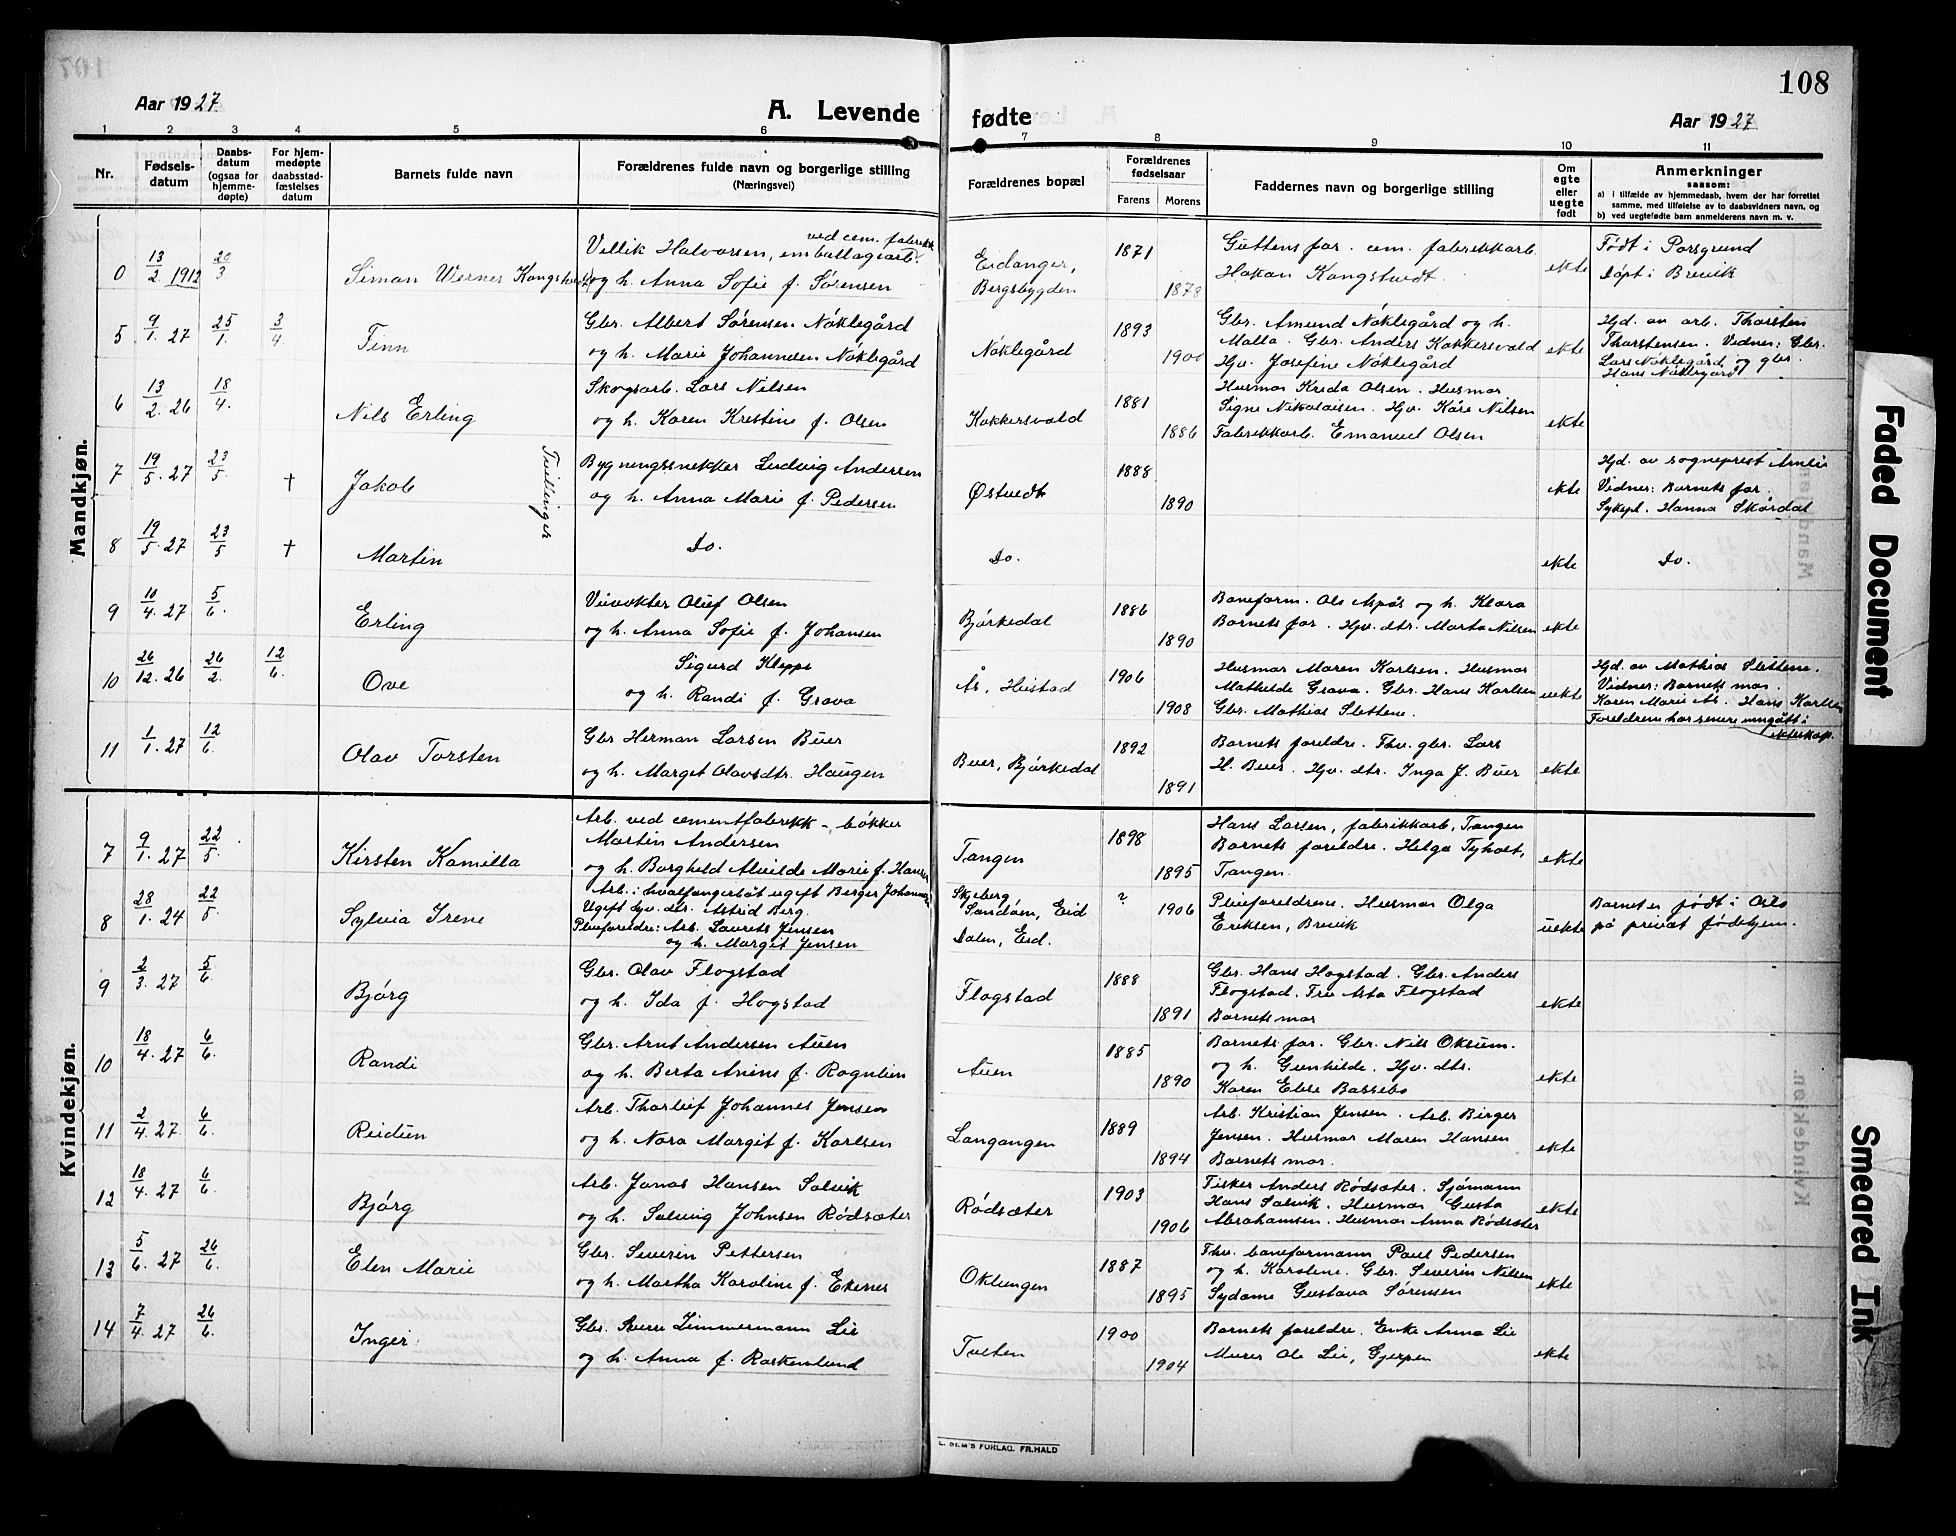 108
Aar 1927
A. Levende fødte
Aar 1927
1 2 3 4 5 6 7 8 9 10 11
Nr.
Fødsels-
datum
Daabs-
datum
(ogsaa for
hjemme-
døpte)
For hjem-
medøpte
daabsstad-
fæstelses
datum
Barnets fulde navn
Forældrenes fulde navn og borgerlige stilling
(Næringsvei)
Forældrenes bopæl
Forældrenes
fødselsaar
Farens Morens
Faddernes navn og borgerlige stilling
Om
egte
eller
uegte
født
Anmerkninger
saasom:
a) i tilfælde av hjemmedaab, hvem der har forrettet
samme, med tilføielse av to daabsvidners navn, og
b) ved uegtefødte barn anmelderens navn m. v.
Mandkjøn.
0 13/2 1912 20/3 Simon Werner Kongstvedt
Vellik Halvorsen, ved cem. fabrikk emballagearb.
og h. Anna Sofie f. Sørensen
Eidanger,
Bergsbygden
1871 1878
Guttens far. cem. fabrikkarb.
Håkon Kongstvedt.
ekte
Født i Porsgrund
døpt i Brevik
5 9/1. 27 25/1. 3/4 Finn
Gbr. Albert Sørensen Nøklegård
og h. Marie Johannesen Nøklegård
Nøklegård
1893 1900
Gbr. Amund Nøklegård og h.
Malla. Gbr. Anders Kokkersvold
Hjv. Josefine Nøklegård
ekte
Hjd. av arb. Thorsten
Thorstensen. Vidner: Gbr.
Lars Nøklegård og gbr.
Hans Nøklegård
6 13/2. 26 18/4. Nils Erling
Skogsarb. Lars Nilsen
og h. Karen Kristine f. Olsen
Kokkersvold
1881 1886
Husmor Kreda Olsen. Husmor
Signe Nikolaisen. Hjv. Kåre Nilsen
Fabrikkarb. Emanuel Olsen
ekte
7 19/5. 27 23/5. † Jakob
Tvillinger
Bygningssnekker Ludvig Andersen
og h. Anna Marie f. Pedersen
Østvedt
1888 1890
ekte
Hjd. av sogneprest Amlie
Vidner: Barnets far.
Sykepl. Hanna Skårdal
8 19/5. 27 23/5 † Martin
Do.
Do.
ekte
Do.
9 10/4. 27 5/6. Erling
Veivokter Oluf Olsen
og h. Anna Sofie f. Johansen
Bjørkedal
1886 1890
Baneform. Ole Aspås og h. Klara
Barnets far. Hjv. dtr. Marta Nilsen
ekte
10 26/12. 26 26/2. 12/6. Ove
Sigurd Kleppe
og h. Randi f. Grava
Ås, Heistad
1906 1908
Husmor Maren Karlsen. Husmor
Mathilde Grava. Gbr. Hans Karlsen
Gbr. Mathias Slettene.
uekte
Hjd. av Mathias Slettene.
Vidner: Barnets mor.
Karen Marie Ås. Hans Karlsen
Foreldrene har senere inngått i
ekteskap.
11 1/1. 27 12/6. Olav Torsten
Gbr Herman Larsen Buer
og h. Marget Olavsdtr. Haugen
Buer, Bjørkedal
1892 1891
Barnets foreldre. Fhv. gbr. Lars
H. Buer. Hjv. dtr. Inga J. Buer
ekte
Kvindekjøn.
7 9/1. 27 22/5. Kirsten Kamilla
Arb. ved cementfabrikk - bøkker
Martin Andersen
og h. Borghild Alvilde Marie f. Hansen
Tangen
1898 1895
Hans Larsen, fabrikkarb, Tangen
Barnets foreldre. Helga Tyholt,
Tangen.
ekte
8 28/1. 24 22/5. Sylvia Irene
Arb. i hvalfangerbåt ugift Berger Johannsen
Ugift hjv. dtr. Astrid Berg.
Pleieforeldre: Arb. Laurets Jensen
og h. Margit Jensen
Skjeberg
Sandøen, Eid
Dalen, Eid.
? 1906
Pleieforeldrene. Husmor Olga
Eriksen, Brevik
uekte
Barnet er født i Oslo
på privat fødehjem.
9 2/3. 27 5/6. Bjørg
Gbr. Olav Flogstad
og h. Ida f. Hogstad
Flogstad
1888 1891
Gbr. Hans Hogstad. Gbr. Anders
Flogstad. Fru Asta Flogstad
Barnets mor
ekte
10 18/4. 27 6/6. Randi
Gbr. Arnt Andersen Auen
og h. Berta Anine f. Rognlien
Auen
1885 1890
Barnets far. Gbr. Nils Oksum.
og h. Gunhilde. Hjv. dtr.
Karen Elise Bassebo
ekte
11 2/4. 27 6/6. Reidun
Arb. Thorleif Johannes Jensen
og h. Nora Margit f. Karlsen
Langangen
1889 1894
Arb. Kristian Jensen. Arb. Birger
Jensen. Husmor Maren Hansen
Barnets mor.
ekte
12 18/4. 27 6/6. Bjørg
Arb. Jonas Hansen Solvik
og h. Solveig Johnsen Rødsæter
Rødsæter
1903 1906
Fisker Anders Rødsæter. Sjømann
Hans Solvik. Husmor Gusta
Abrahamsen. Husmor Anna Rødsæter
ekte
13 5/6. 27 26/6. Elen Marie
Gbr. Severin Pettersen
og h. Martha Karoline f. Ekenes
Oklungen
1887 1895
Fhv. baneformann Paul Pedersen
og h. Karoline. Gbr. Severin Nilsen
Sydame Gustava Sørensen
ekte
14 7/4. 27 26/6. Inger
Gbr. Sverre Zimmermann Lie
og h. Anna f. Raskenlund
Tveten
1900 1904
Barnets foreldre. Enke Anna Lie
Murer Ole Lie, Gjerpen
ekte
FORLAG. FR.HALD
Faded Document
Smeared Ink